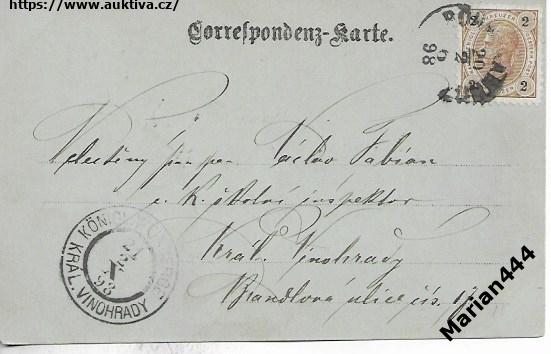 https://www.auktiva.cz/
Correspondenz-Karte.
2 2
2 2
98
Velectěný pán pan Václav Fabian
c. k. školní inspektor
Král. Vinohrady
Brandlova ulice čís.
KÖNIGL.
KRÁL. VINOHRADY
98
Marian444